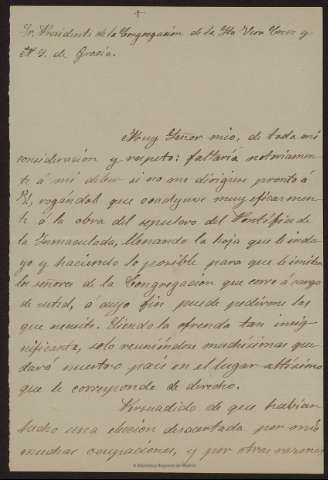 Sr. Presidente de la Congregación de la Sta Vera Cruz y
N. S. de Gracia.
Muy Señor mio, de toda mi
consideración y respeto: faltaría notoriamen-
te á mi deber si no me dirigiese pronto á
V., rogándole que coadyuve muy eficazmen-
te á la obra del sepulcro del Pontífice de
la Inmaculada, llenando la hoja que le inclu-
yo y haciendo lo posible para que le imiten
los señores de la Congregación que corre á cargo
de usted, á cuyo fin puede pedirme las
que necesite. Siendo la ofrenda tan insig-
nificante, solo reuniéndose muchísimas que-
dará nuestro país en el lugar altísimo
que le corresponde de derecho.
Persuadido de que habían
hecho una elección desacertada por mis
muchas ocupaciones, y por otras razones
© Biblioteca Regional de Madrid